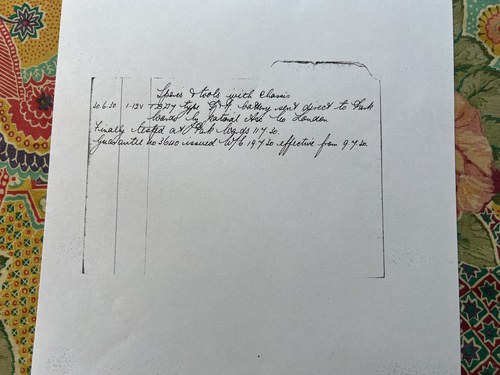 Spares & tools with chassis
20.6.30 1-12V battery sent direct to Park
Works by London
Finally tested at Park 11.7.30.
Guarantee no 3640 issued W/E 19.7.30 effective from 9.7.30.